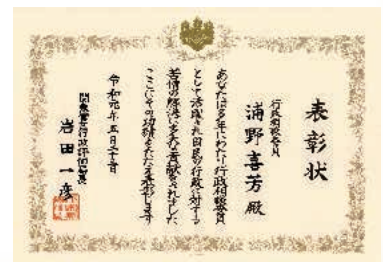 表彰状
行政相談委員
浦野喜芳 殿
あなたは多年にわたり行政相談委員
として活躍され国民の行政に対する
苦情の解決に多大な貢献をされました
ここにその功績をたたえ表彰します
令和元年五月二十
関東管区行政評価局長
岩田一彦